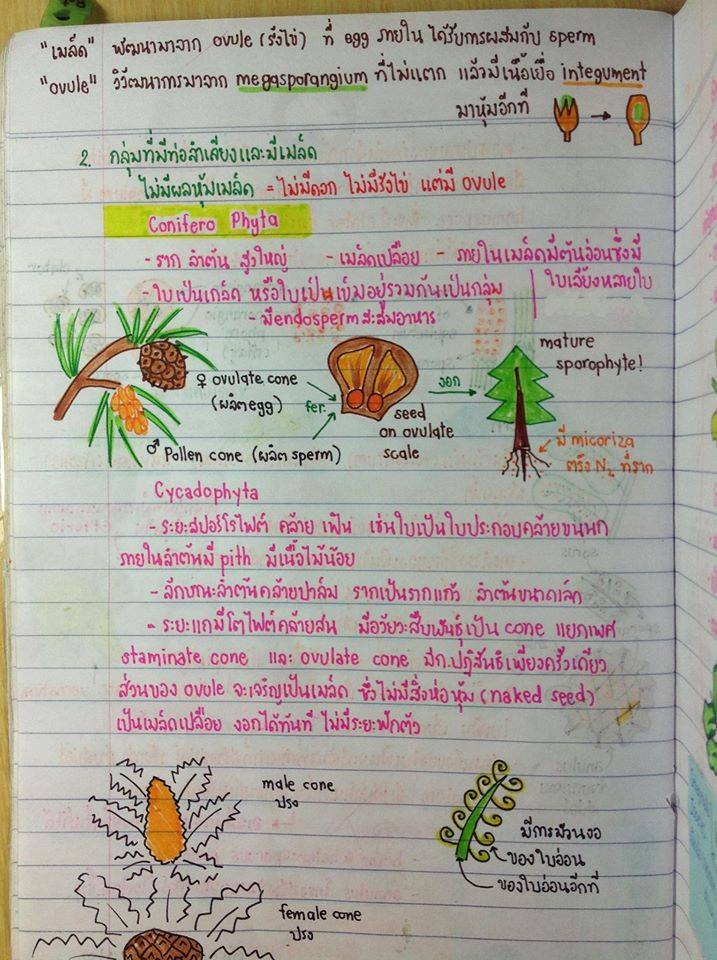 "เมล็ด" พัฒนามาจาก ovule (รังไข่) ที่ egg ภายใน ได้รับการผสมกับ sperm
"ovule" วิวัฒนาการมาจาก megasporangium ที่ไม่แตก แล้วมีเนื้อเยื่อ integument
มาหุ้มอีกที
2. กลุ่มที่มีท่อลำเลียงและมีเมล็ด
ไม่มีผลหุ้มเมล็ด = ไม่มีดอก ไม่มีรังไข่ แต่มี ovule
Conifero Phyta
- ราก ลำต้น สูงใหญ่ - เมล็ดเปลือย - ภายในเมล็ดมีต้นอ่อนซึ่งมี
- ใบเป็นเกล็ด หรือใบเป็นเข็มอยู่รวมกันเป็นกลุ่ม ใบเลี้ยงหลายใบ
- มี endosperm สะสมอาหาร
mature
sporophyte!
♀ ovulate cone
(ผลิต egg)
fer.
งอก
seed
on ovulate
scale
♂ Pollen cone (ผลิต sperm)
มี micoriza
ตรึง N₂ ที่ราก
Cycadophyta
- ระยะสปอร์โรไฟต์ คล้าย เฟิน เช่นใบเป็นใบประกอบคล้ายขนนก
ภายในลำต้นมี pith มีเนื้อไม้น้อย
- ลักษณะลำต้นคล้ายปาล์ม รากเป็นรากแก้ว ลำต้นขนาดเล็ก
- ระยะแกมีโตไฟต์คล้ายสน มีอวัยวะสืบพันธุ์เป็น cone แยกเพศ
staminate cone และ ovulate cone มีก.ปฏิสนธิเพียงครั้งเดียว
ส่วนของ ovule จะเจริญเป็นเมล็ด ซึ่งไม่มีสิ่งห่อหุ้ม (naked seed)
เป็นเมล็ดเปลือย งอกได้ทันที ไม่มีระยะฟักตัว
male cone
ปรง
มีการม้วนงอ
ของใบอ่อน
ของใบอ่อนอีกที
female cone
ปรง